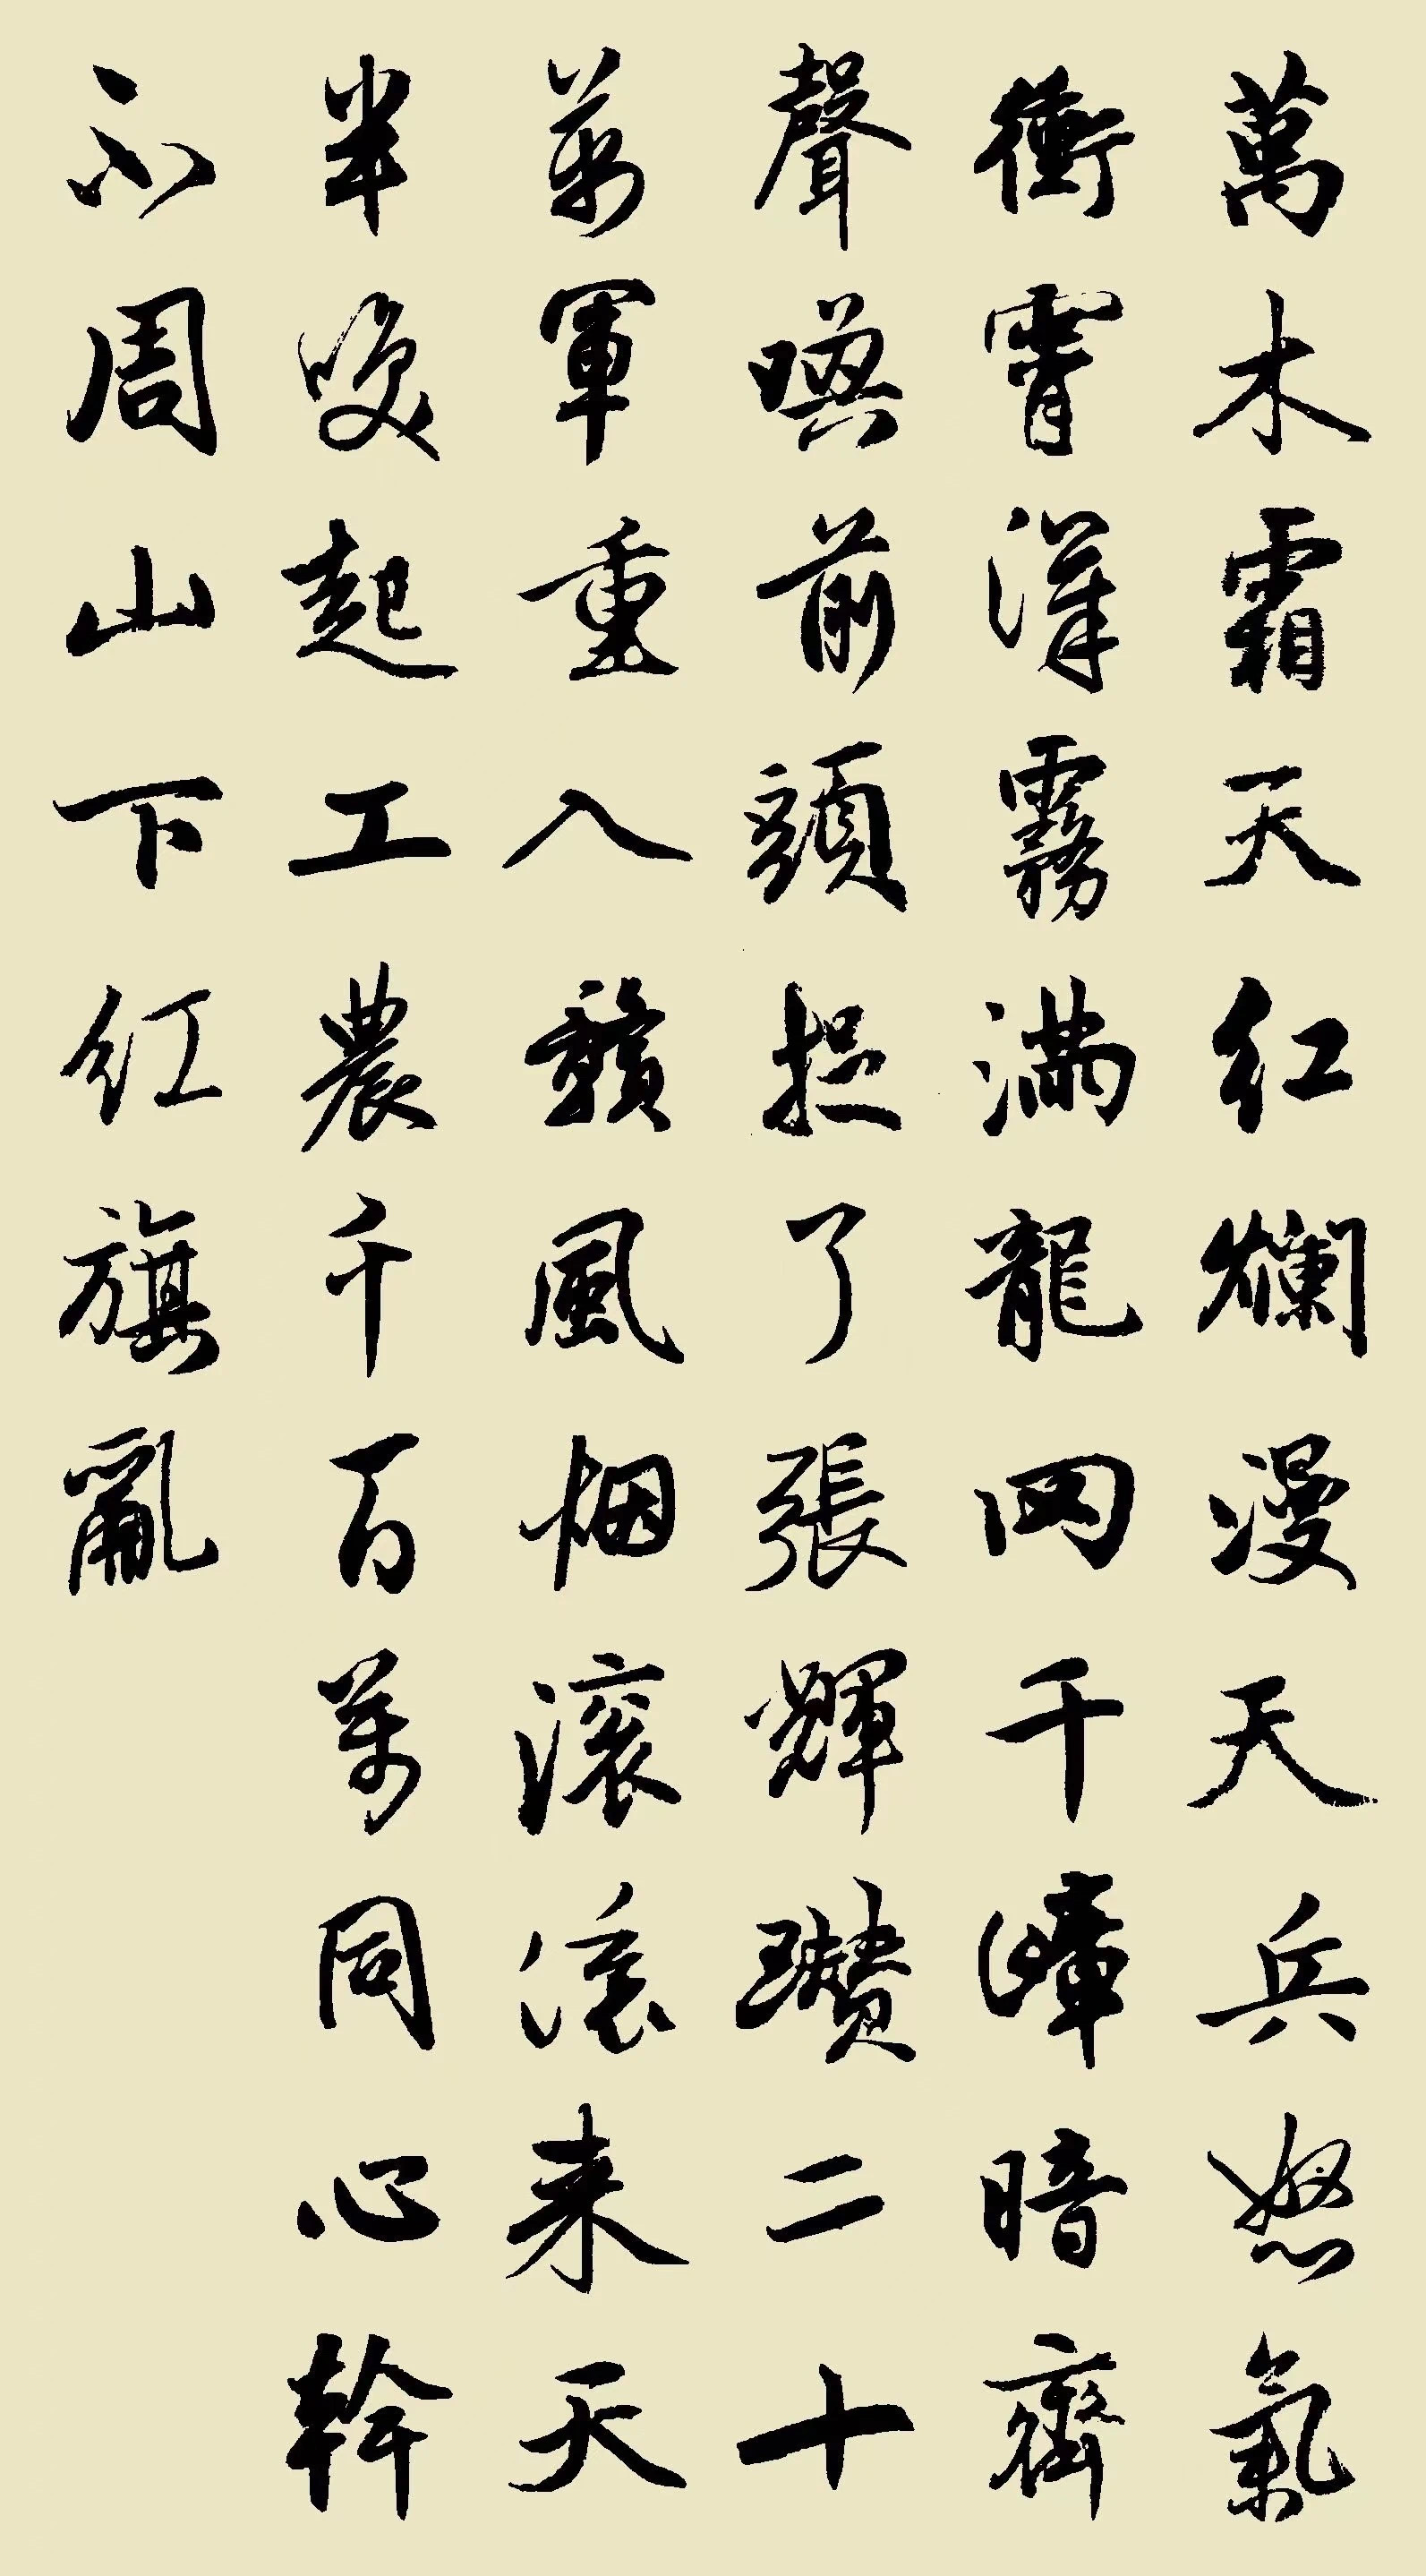 萬木霜天紅爛漫天兵怒氣
衝霄漢霧滿龍岡千嶂暗齊
聲喚前頭捉了張輝瓚二十
萬軍重入贛風烟滾滾来天
半喚起工農千百萬同心幹
不周山下紅旗亂